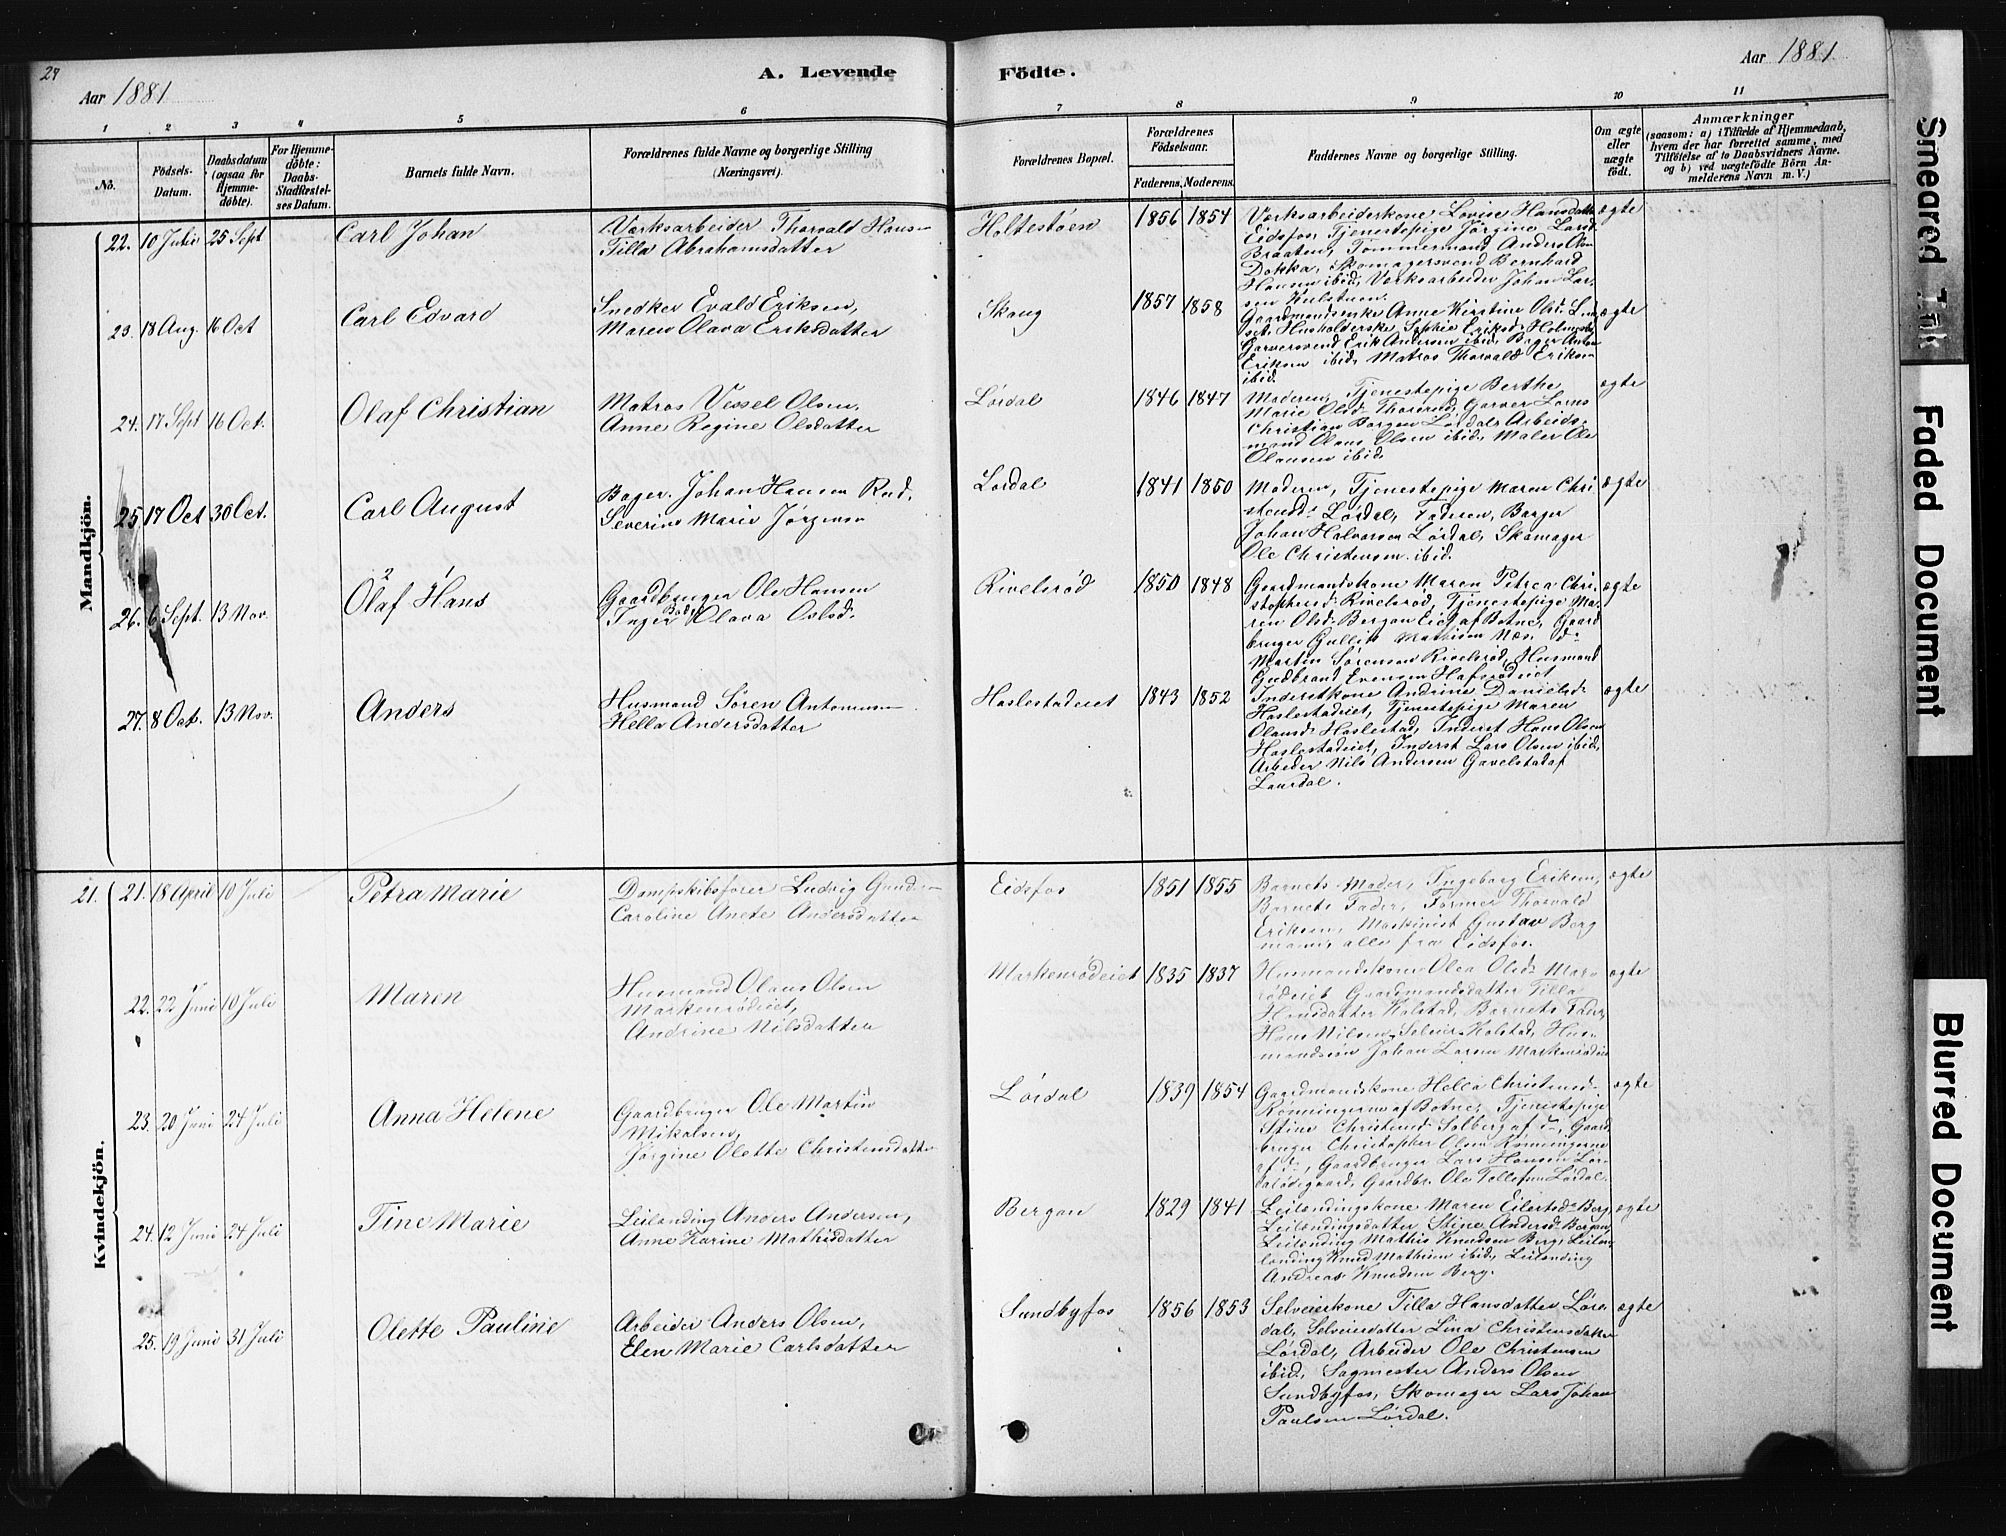 24
Aar 1881
A. Levende Födte.
Aar 1881
1 2 3 4 5 6 7 8 9 10 11
No.
Födsels-Datum.
Daabsdatum (ogsaa for Hjemme-döbte).
For Hjemme-döbte: Daabs-Stadfæstel-ses Datum.
Barnets fulde Navn.
Forældrenes fulde Navne og borgerlige Stilling (Næringsvei).
Forældrenes Bopæl.
Forældrenes Födselsaar.
Faderens. Moderens.
Faddernes Navne og borgerlige Stilling.
Om ægte eller uægte födt.
Anmærkninger
(saasom: a) i Tilfælde af Hjemmedaab, hvem der har forrettet samme, med Tilföielse af to Daabsvidners Navne. og b) ved uægtefödte Börn An-melderens Navn m. V.)
Mandkjön.
22. 10 Juli 25 Sept
Carl Johan
Værksarbeider Thorvald Hansen
Tilla Abrahamsdatter
Holtestøen
1856 1854
Værksarbeiderkone Lovise Hansdatter
Eidsfos, Tjenestepige Jørgine Larsd.
Braaten, Tømmermand Anders Olsen
Dokka, Skomagersvend Bernhard
Hansen ibid, Værksarbeider Johan Lar-
sen
ægte
23. 18 Aug. 16 Oct
Carl Edvard
Snedker Evald Eriksen,
Maren Olava Eriksdatter
Skaug
1857 1858
Gaardmandsenke Anne Kirstine Olsd.
Husholderske Sophie Eriksd. Holmestr.
Garversvend Erik Andersen ibid, Bager Anton
Eriksen ibid, Matros Thorvald Eriksen
ibid.
ægte
24. 17 Sept 16 Oct.
Olaf Christian
Matros Vessel Olsen,
Anne Regine Olsdatter
Lørdal
1846 1847
Moderen, Tjenestepige Berthe
Marie Olsd. Thorerud, Garver Lorns
Christian Borgen Lørdal, Arbeids-
mand Olaus Olsen ibid, Maler Ole
Olausen ibid.
ægte
25. 17 Oct 30 Oct.
Carl August
Bager. Johan Hansen Rud,
Severine Marie Jørgensen
Lørdal
1841 1850
Moderen, Tjenestepige Maren Chri-
stensd. Lørdal, Faderen, Bager
Johan Halvorsen Lørdal, Skomager
Ole Christensen ibid.
ægte
26. 6 Sept. 13 Nov.
2 1
Olaf Hans
Gaardbruger Ole Hansen
Inger Olava Olsd.
Rivelsrød
1850 1848
Gaardmandskone Maren Petrea Chri-
stophersd. Rivelsrød, Tjenestepige Ma-
ren Olsd. Bergan Eie af Botne, Gaard
bruger Gullik Mathisen Næs do
Martin Sørensen Rivelsrød, Husmand
Gudbrand Evensen Hafsrødeiet
ægte
27. 8 Oct. 13 Nov.
Anders
Husmand Søren Antonsen
Hella Andersdatter
Haslestadeiet
1843 1852
Inderstkone Andrine Danielsd.
Haslestadeiet, Tjenestepige Maren
Olausd. Haslestad, Inderst Hans Olsen
Haslestadeiet, Inderst Lars Olsen ibid,
Arbeder Nils Andersen Gavelstad af
Laurdal.
ægte
Kvindekjön.
21. 21. 18 April 10 Juli
Petra Marie
Dampskibsfører Ludvig Gundersen
Caroline Anete Andersdatter
Eidsfos
1851 1855
Barnets Moder, Ingeborg Eriksen,
Barnets Fader, Former Thorvald
Eriksen, Maskinist Gustav Berg
mann, alle fra Eidsfos.
ægte
22. 22 Juni 10 Juli
Maren
Husmand Olaus Olsen
Markenrødeiet,
Andrine Nilsdatter
Markenrødeiet
1835 1837
Husmandskone Olea Olsd. Mar-
rødeiet Gaardmandsdatter Tilla
Hansdatter Kolstad, Barnets Fader,
Hans Nilsen Seleier Kolstad, Hus-
mandssøn Johan Larsen Markenrødeie
ægte
23. 20 Juni 24 Juli
Anna Helene
Gaardbruger Ole Martin
Mikalsen,
Jørgine Olette Christensdatter
Lørdal
1839 1854
Gaardmandskone Hella Christensd.
Rønningerne af Botne, Tjenestepige
Stine Christensd. Solberg af do, Gaard
bruger Christopher Olsen Rønningerne
af do, Gaardbruger Lars Hansen Lør-
dalødegaard, Gaardbr. Ole Tollefsen Lørdal.
ægte
24. 12 Juni 24 Juli
Tine Marie
Leilænding Anders Andersen,
Anne Karine Mathisdatter
Bergan
1829 1841
Leilændingskone Maren Eilertsd. Berg,
Leilændingsdatter Stine Andersd. Bergan,
Leilænding Mathis Knudsen Berg, Leilæn-
lænding Knud Mathisen ibid, Leilænding
Andreas Knudsen Berg.
ægte
25. 19 Juni 31 Juli
Olette Pauline
Arbeider Anders Olsen,
Elen Marie Carlsdatter
Sundbyfos
1856 1853
Selveierkone Tilla Hansdatter Lør-
dal, Selveierdatter Lina Christensdatter
Lørdal, Arbeider Ole Christensen
ibid, Sagmester Anders Olsen
Sundbyfos, Skomager Lars Johan
Paulsen Lørdal.
ægte
Smeared Ink
Faded Document
Blurred Document